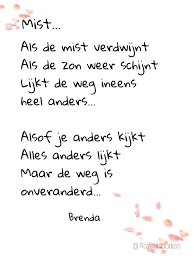 Mist...
Als de mist verdwijnt
Als de zon weer schijnt
Lijkt de weg ineens
heel anders...
Alsof je anders kijkt
Alles anders lijkt
Maar de weg is
onveranderd...
Brenda